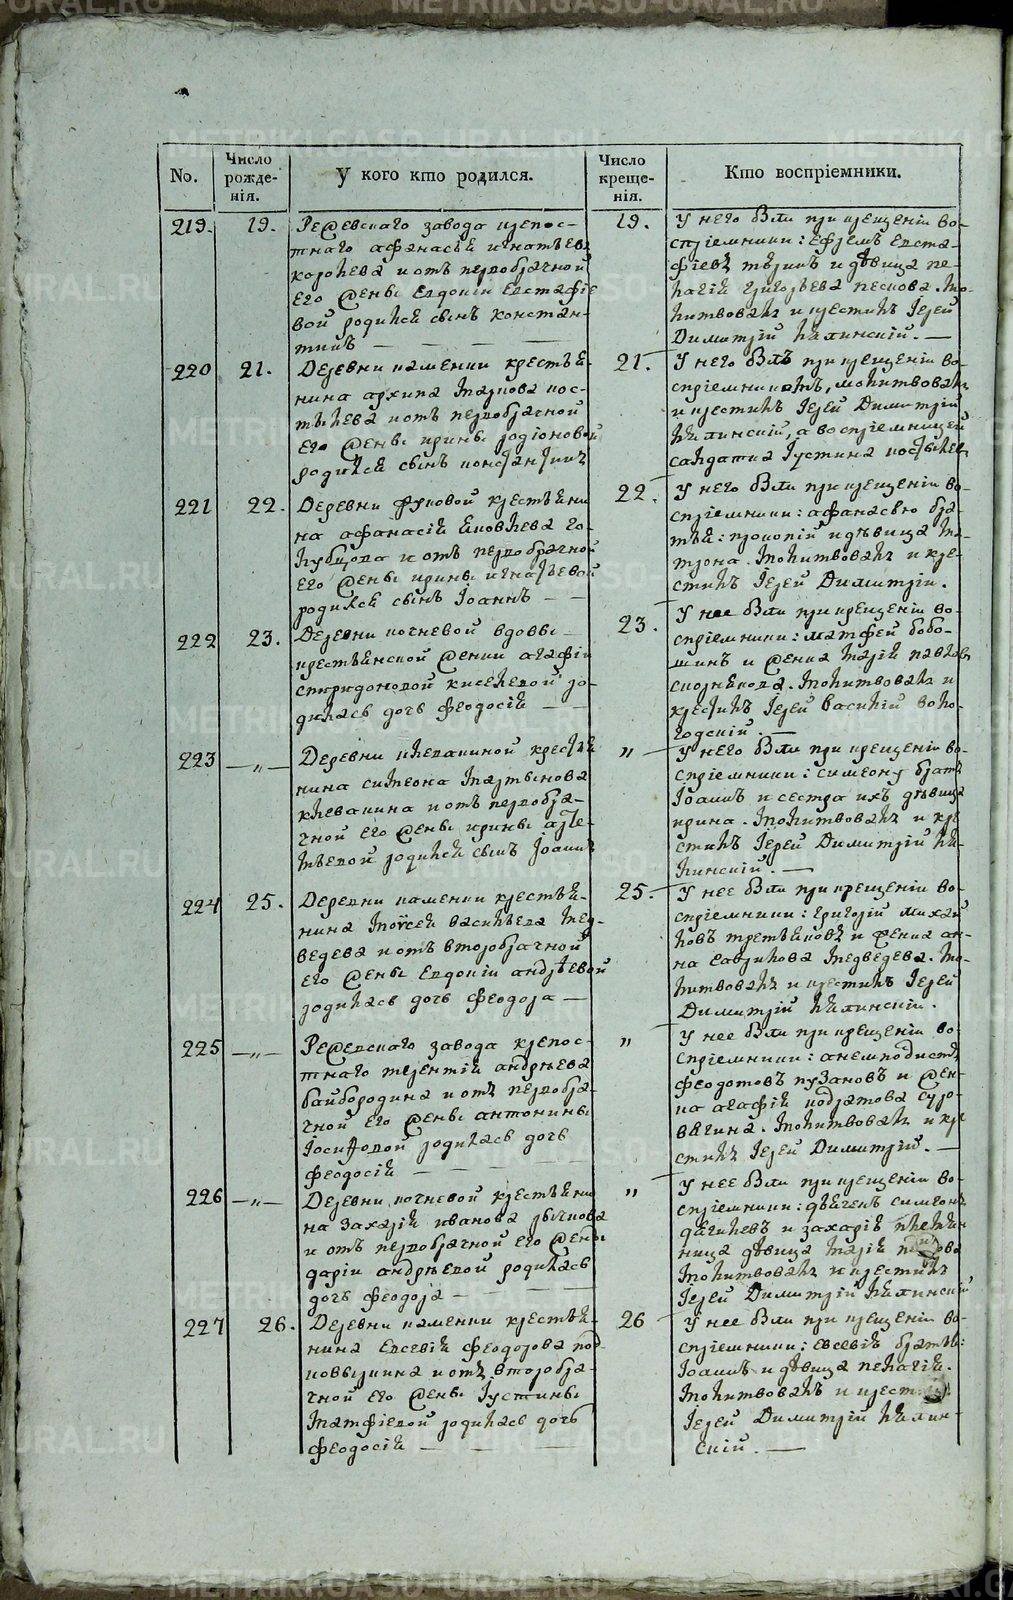 METRIKI.GASO-URAL.RU
No.
Число рожде-нія.
У кого кто родился.
Число креще-нія.
Кто воспріемники.
219.
19.
Режевскаго завода крепос-
тнаго афанасія игнатьева
королева и отъ первобрачной
Его жены Евдокіи Евстафіе
вой родился сынъ констан-
тинъ
19.
У него были при крещеніи во-
спріемники: Ефремъ Евста-
фіевъ и дѣвица пе-
лагія григорьева пескова. мо-
литвовалъ и крестилъ Іерей
Димитрій
220
21.
Деревни каменки крестья-
нина архипа карпова кос-
тылева и отъ первобрачной
Его жены ирины родіоновой
родился сынъ константинъ
21.
У него былъ при крещеніи во-
спріемникомъ, молитвовалъ
и крестилъ Іерей Димитрій
а воспріемницей
салдатка Іустина костылева
221
22.
Деревни крестьяни
на афанасія яковлева го-
лубцова и отъ первобрачной
Его жены ирины игнатьевой
родился сынъ Іоаннъ
22.
У него были при крещеніи во-
спріемники: афанасью бра-
тья: прокопій и дѣвица ма-
трона. молитвовалъ и кре-
стилъ Іерей Димитрій.
222
23.
Деревни кочневой вдовы
крестьянской женки агафіи
спиридоновой киселевой ро-
дилась дочь феодосія
23.
У нее были при крещеніи во-
спріемники: матфей бобо-
шинъ и женка марія павлова
скорнякова. молитвовалъ и
крестилъ Іерей василій воло-
годскій
223
— „ —
Деревни клевакиной крестья
нина симеона мартынова
клевакина и отъ первобра-
чной его жены ирины арте-
мьевой родился сынъ Іоаннъ
„
У него были при крещеніи во-
спріемники: симеону братъ
Іоаннъ и сестра ихъ дѣвица
ирина. молитвовалъ и кре
стилъ Іерей Димитрій
224
25.
Деревни каменки крестья-
нина моѵсея васильева мед-
ведева и отъ второбрачной
его жены Евдокіи андрѣевой
родилась дочь феодора
25.
У нее были при крещеніи во-
спріемники: григорій михай
ловъ третьяковъ и женка ан-
на гаврилова медведева. мо-
литвовалъ и крестилъ Іерей
Димитрій
225
— „ —
Режевскаго завода крепос-
тнаго терентія андрѣева
байбородина и отъ первобра-
чной его жены антонины
Іосифовой родилась дочь
феодосія
„
У нее были при крещеніи во-
спріемники: анемподистъ
феодотовъ пузановъ и жен-
ка агафія кодратова суро-
вягина. молитвовалъ и кре
стилъ Іерей Димитрій.
226
— „ —
Деревни кочневой крестьяни
на захарія иванова рычкова
и отъ первобрачной его жены
даріи андрѣевой родилась
дочь феодора
„
У нее были при крещеніи во-
спріемники: симеонъ
и захарія племян
ница дѣвица марія
молитвовалъ и крестилъ
Іерей Димитрій
227
26.
Деревни каменки крестья-
нина Евсевія феодорова под-
ковыркина и отъ второбра-
чной его жены Іустины
матфіевой родилась дочь
феодосія
26
У нее были при крещеніи во-
спріемники: евсевія братъ:
Іоаннъ и дѣвица пелагія.
молитвовалъ и крестилъ
Іерей Димитрій